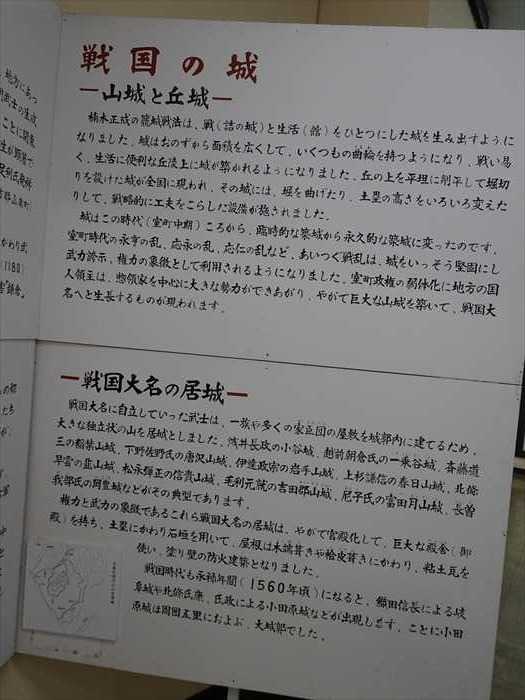 戦国の城
山城と丘城
楠木正成の籠城戦法は、戦(詰の城)と生活(館)をひとつにした城を生み出すように
なりました。城はおのずから面積を広くして、いくつもの曲輪を持つようになり、戦い易
く、生活に便利な丘陵上に城が築かれるようになりました。丘の上を平坦に削平して堀切
りを設けた城が全国に現われ、その城には、堀を曲げたり、土塁の高さをいろいろ変えた
りして、戦略的に工夫をこらした設備が施されました。
城はこの時代(室町中期)ころから、臨時的な築城から永久的な築城に変ったのです。
室町時代の永亨の乱、応永の乱、応仁の乱など、あいつぐ戦乱は、城をいっそう堅固にし
武力誇示、権力の象徴として利用されるようになりました。室町政権の弱体化に地方の国
人領主は、惣領家を中心に大きな勢力ができあがり、やがて巨大な山城を築いて、戦国大
名へと生長するものが現われます。
戦国大名の居城
戦国大名に自立していった武士は、一族や多くの家臣団の屋敷を城郭内に建てるため、
大きな独立状の山を居城としました。浅井長政の小谷城、越前朝倉氏の一乗谷城、斎藤道
三の稲葉山城、下野佐野氏の唐沢山城、伊達政宗の岩手山城、上杉謙信の春日山城、北條
早雲の韮山城、松永弾正の信貴山城、毛利元就の吉田郡山城、尼子氏の富田月山城、長曽
我部氏の岡豊城などがその典型であります。
権力と武力の象徴であるこれら戦国大名の居城は、やがて宮殿化して、巨大な殿舎(御
殿)を持ち、土塁にかわり石垣を用いて、屋根は木端葺きや桧皮葺きにかわり、粘土瓦を
使い、塗り壁の防火建築となりました。
戦国時代も永禄年間(1560年頃)になると、織田信長による岐
阜城や北條氏康、氏政による小田原城などが出現します。ことに小田
原城は周囲五里におよぶ、大城郭でした。
地方にあっ
(1180)